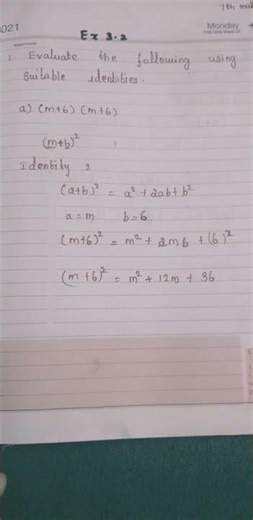 7th
2021
Monday
Ex 3.2
1. Evaluate the following using
suitable identities.
a) (m+6) (m+6)
(m+6)²
Identity :
(a+b)² = a² + 2ab + b²
a = m b = 6
(m+6)² = m² + 2m6 + (6)²
(m+6)² = m² + 12m + 36